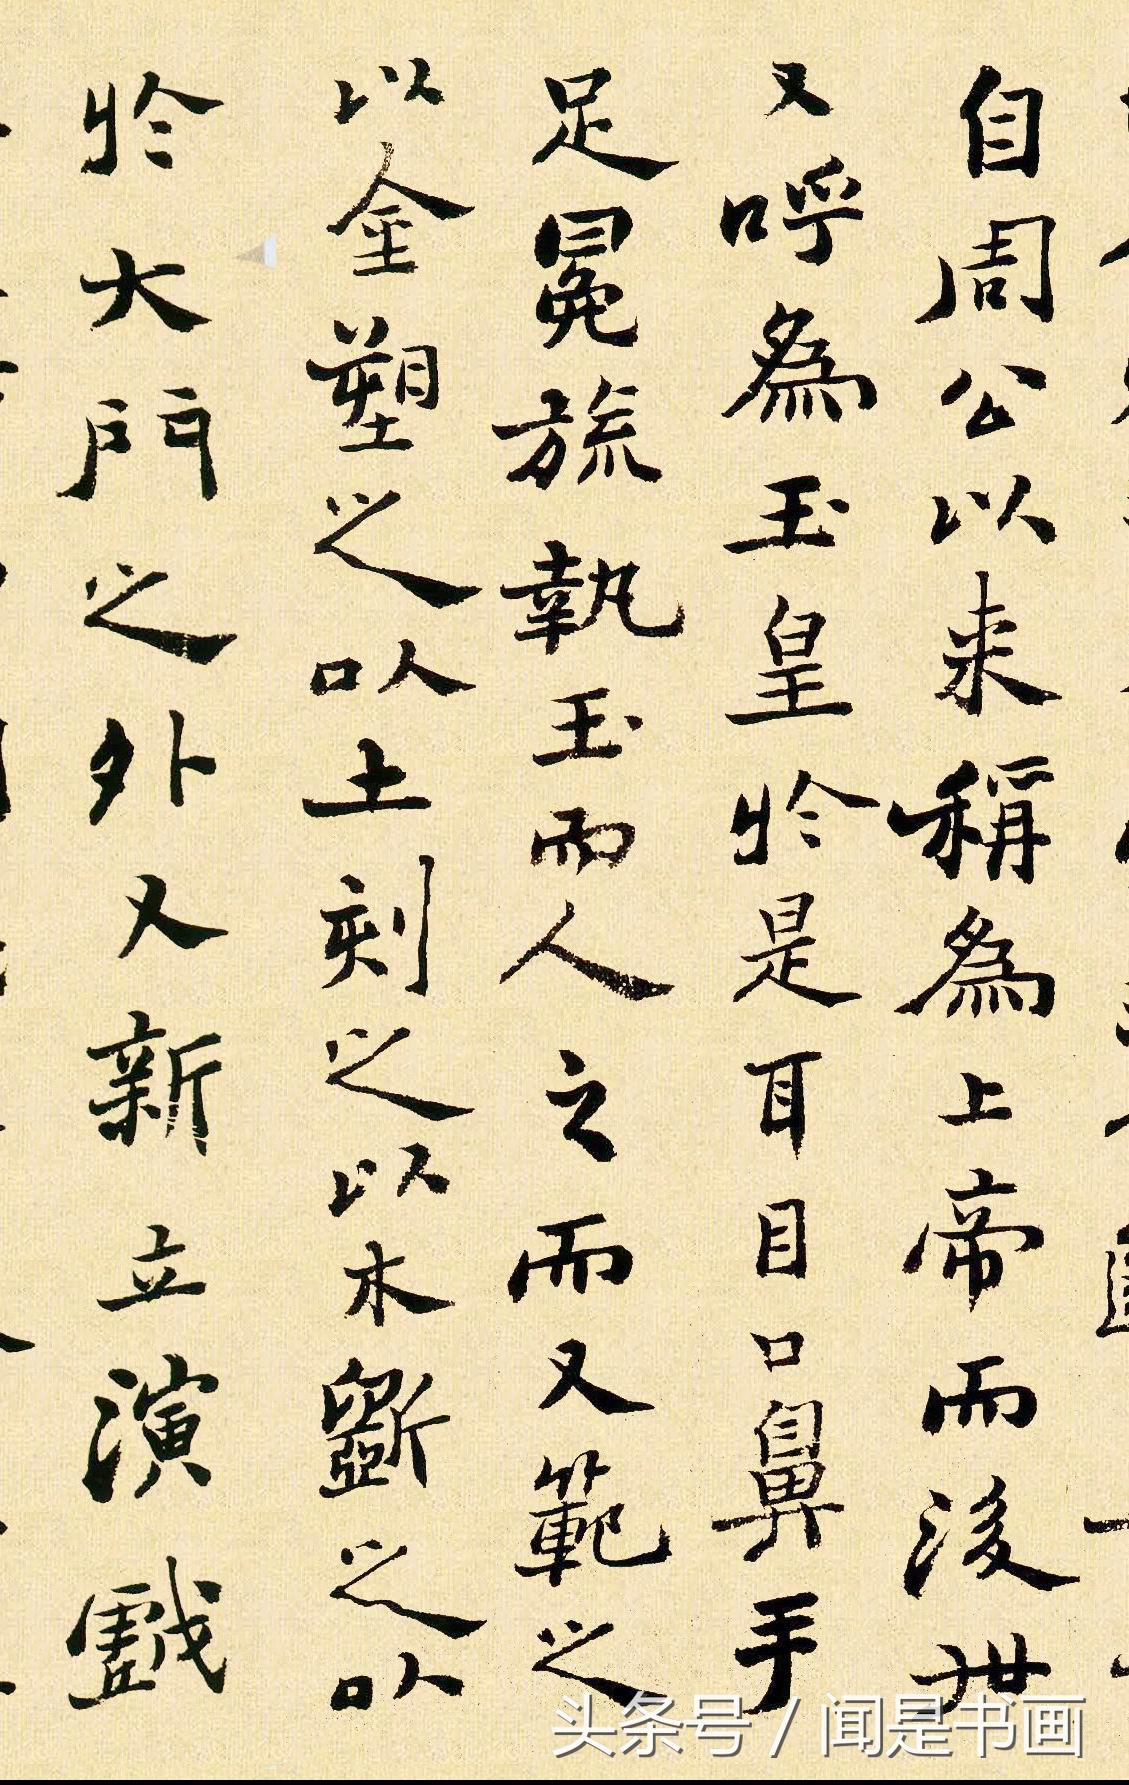 自周公以来稱為上帝而後世
又呼為玉皇於是耳目口鼻手
足冕旒執玉而人之而又範之
以金塑之以土刻之以木斵之以
於大門之外又新立演戲
头条号 / 闻是书画